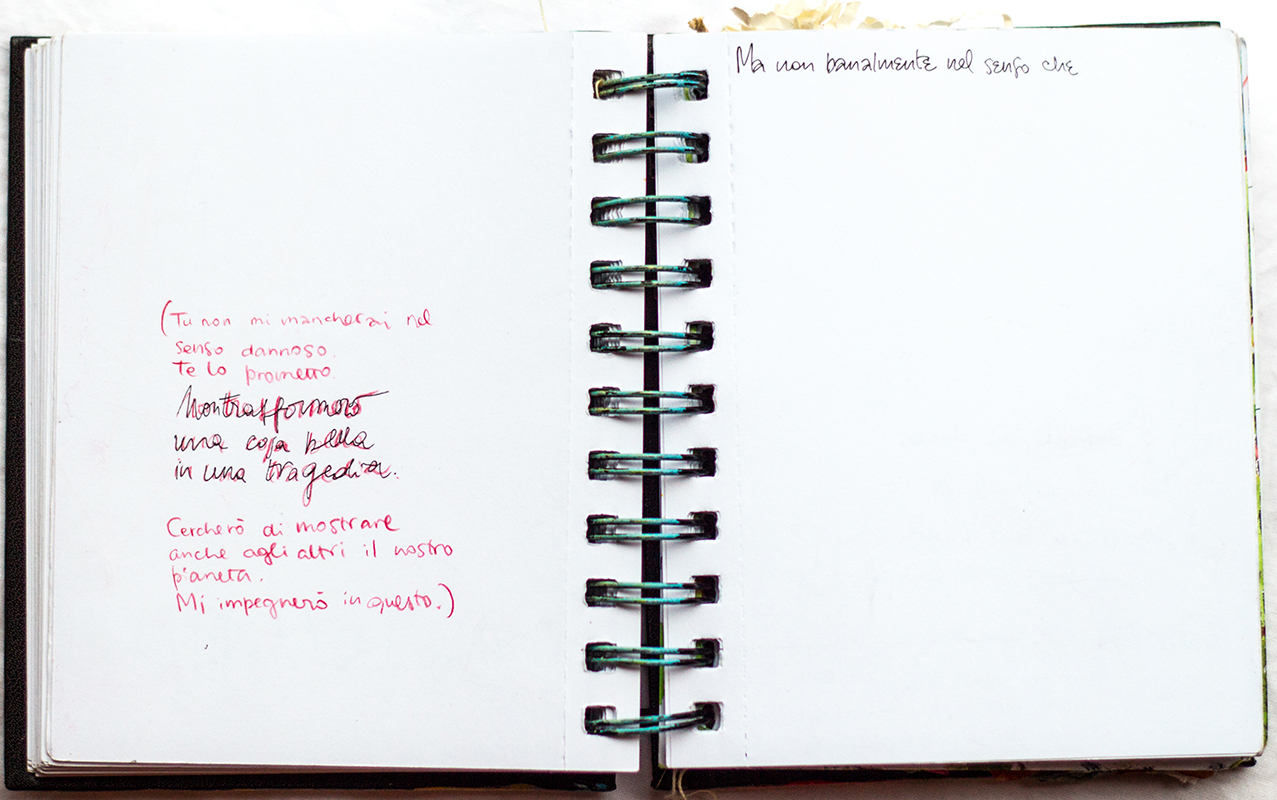 (Tu non mi mancherai nel
senso dannoso.
Te lo prometto.
Non trasformerò
una cosa bella
in una tragedia.
Cercherò di mostrare
anche agli altri il nostro
pianeta.
Mi impegnerò in questo.)
Ma non banalmente nel senso che